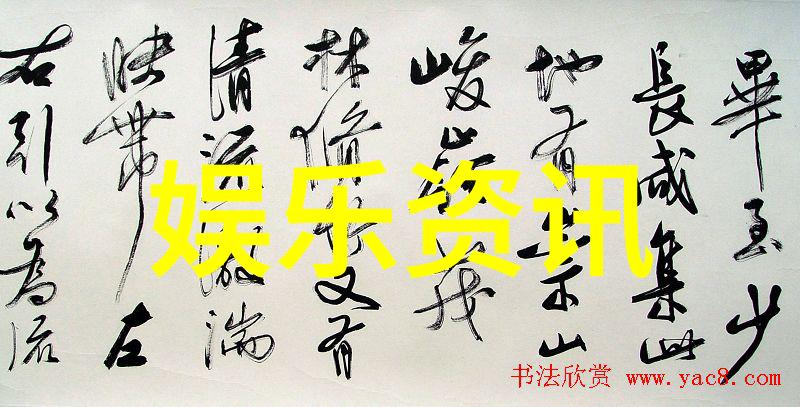 畢至少
長咸集此
地有崇山
峻嶺茂
林脩竹又有
清流激湍
映帶左
右引以為流
娱乐资讯
书法欣赏 www.yac8.com